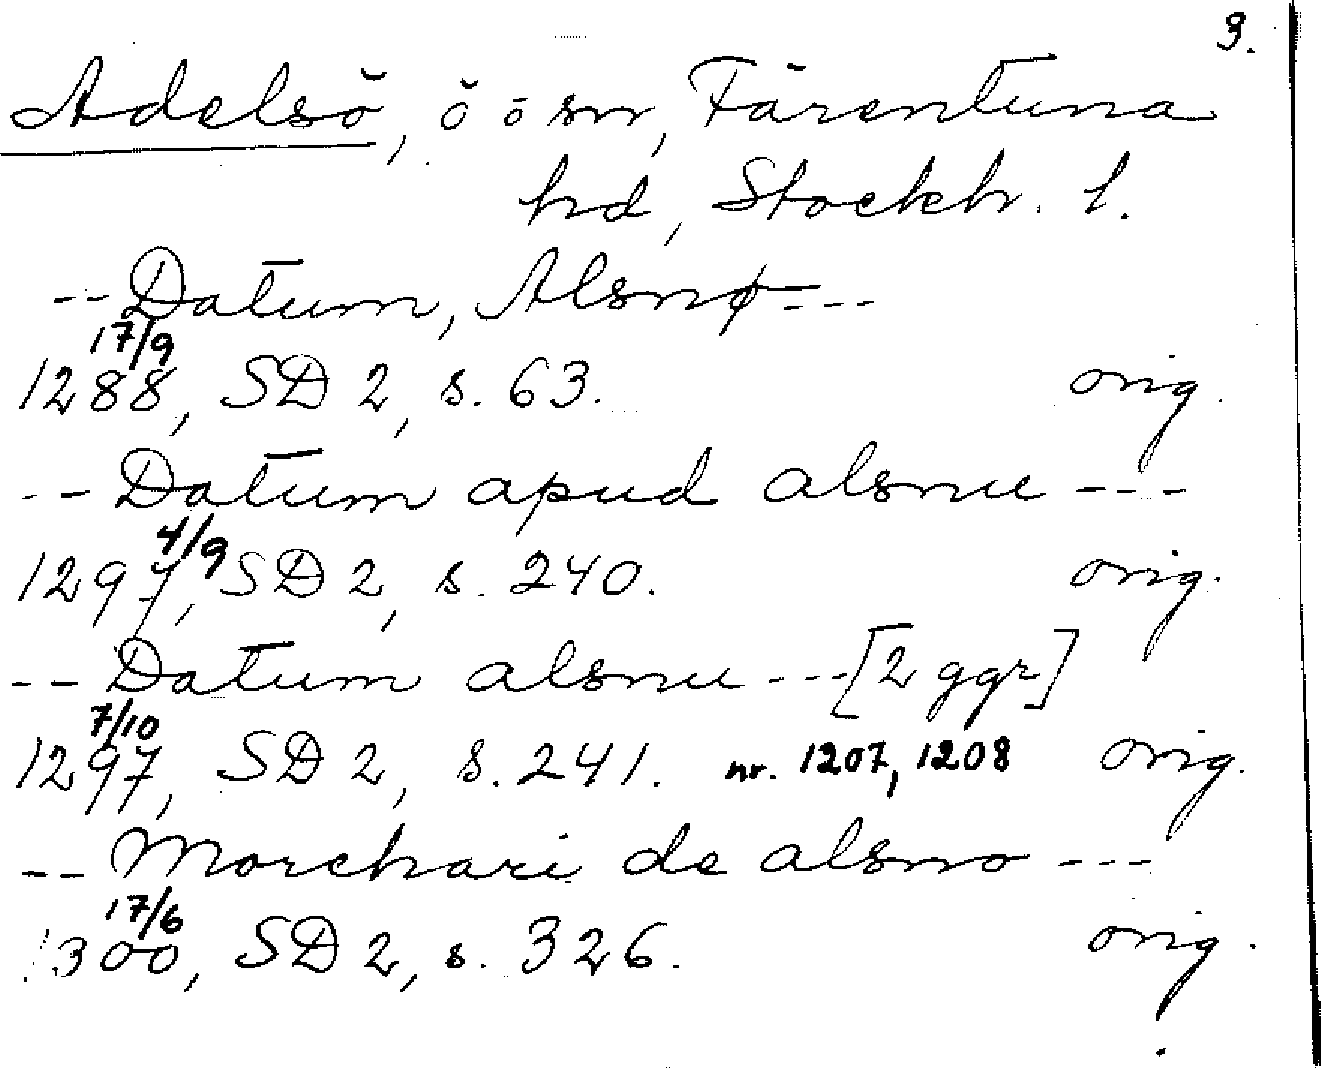 3.
Adelsö, ö o sn, Färentuna
hd, Stockh. l.
-- Datum, Alsnø ---
17/9
1288, SD 2, s. 63. orig.
-- Datum apud alsnu ---
4/9
1297, SD 2, s. 240. orig.
-- Datum alsnu --- [2 ggr]
7/10
1297, SD 2, s. 241. nr. 1207, 1208 orig.
-- Morchari de alsno ---
17/6
1300, SD 2, s. 326. orig.